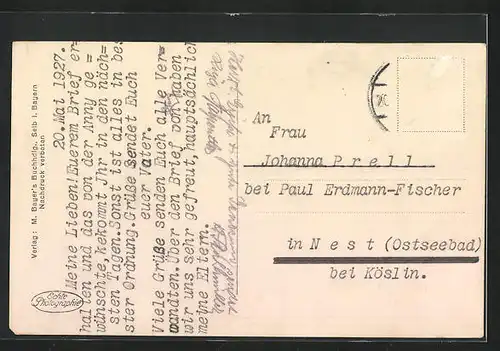 20. Mai 1927.
Meine Lieben! Euerem Brief er=
halten und das von der Anny ge=
wünschte, bekommt Jhr in den näch=
sten Tagen. Sonst ist alles in be
ster Ordnung. Grüße sendet Euch
euer Vater.
Viele Grüße senden Euch alle Ver=
wandten. Über den Brief von haben
wir uns sehr gefreut, hauptsächlich
meine Eltern.
Verlag: M. Bayer's Buchhdlg., Selb i. Bayern
Nachdruck verboten
Echte
Photographie
An
Frau
Johanna Prell
bei Paul Erdmann-Fischer
in Nest (Ostseebad)
bei Köslin.